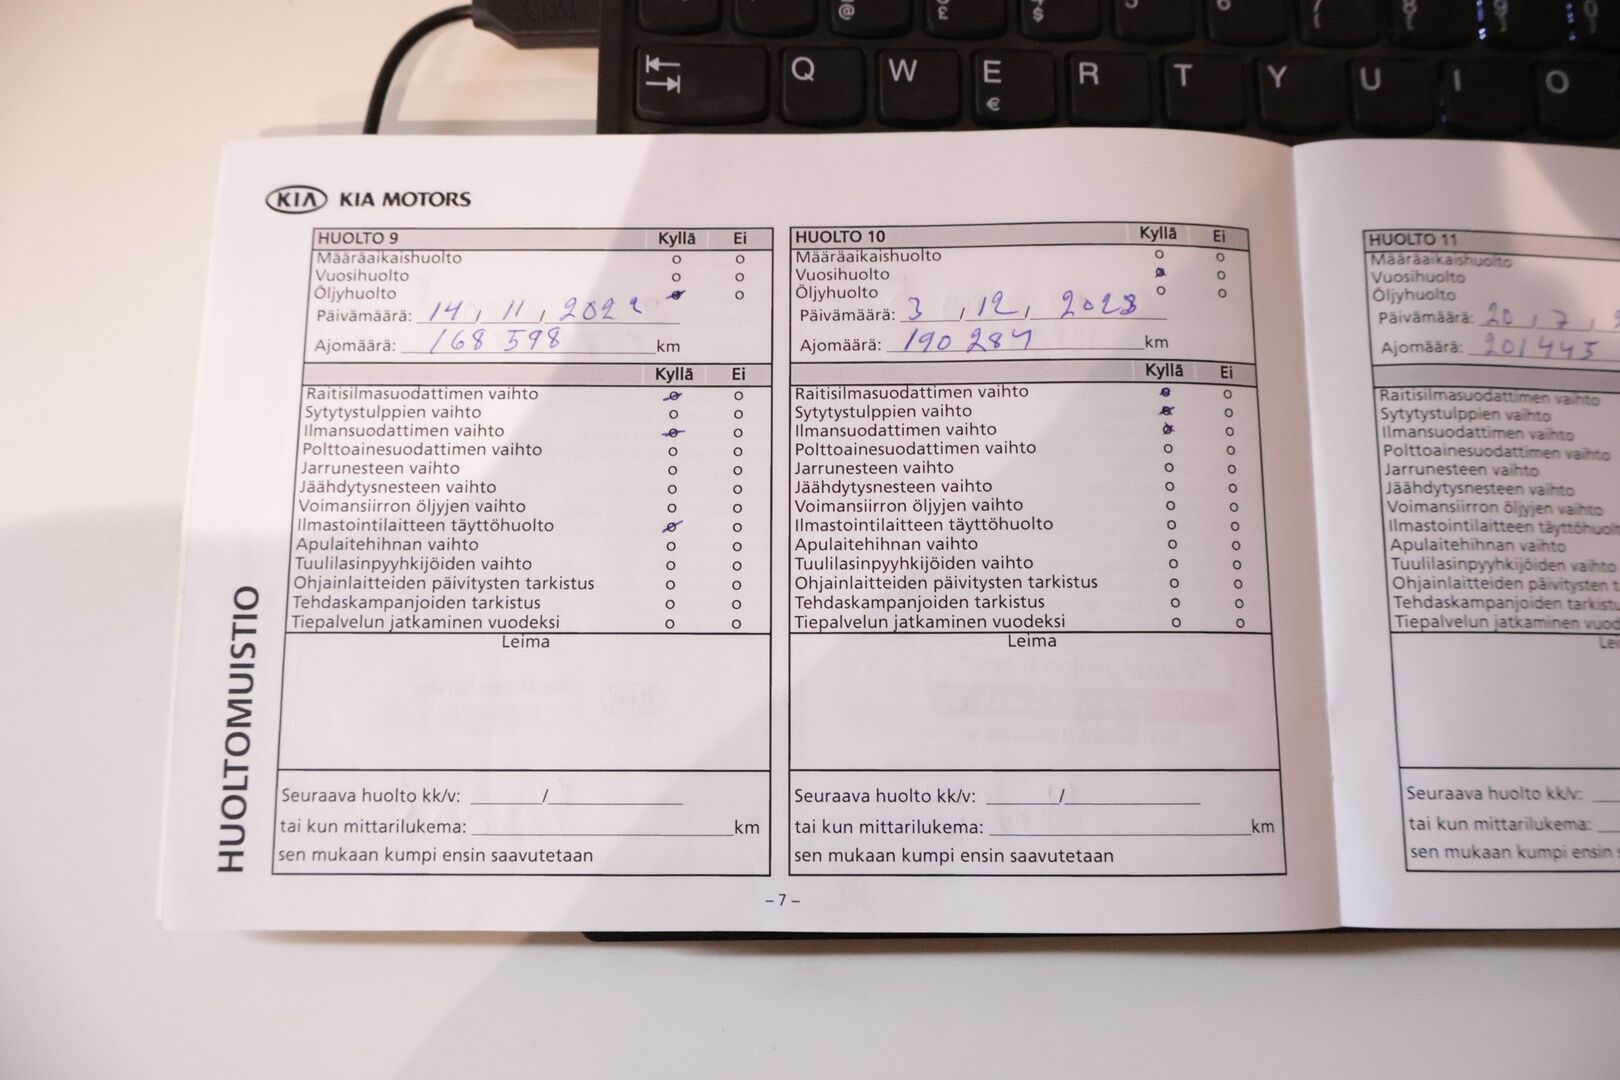 Q W E R T Y U I O
€
KIA KIA MOTORS
HUOLTOMUISTIO
HUOLTO 9 Kyllä Ei
Määräaikaishuolto o o
Vuosihuolto o o
Öljyhuolto o o
Päivämäärä: 14 / 11 / 2022
Ajomäärä: 168 598 km
Kyllä Ei
Raitisilmasuodattimen vaihto o o
Sytytystulppien vaihto o o
Ilmansuodattimen vaihto o o
Polttoainesuodattimen vaihto o o
Jarrunesteen vaihto o o
Jäähdytysnesteen vaihto o o
Voimansiirron öljyjen vaihto o o
Ilmastointilaitteen täyttöhuolto o o
Apulaitehihnan vaihto o o
Tuulilasinpyyhkijöiden vaihto o o
Ohjainlaitteiden päivitysten tarkistus o o
Tehdaskampanjoiden tarkistus o o
Tiepalvelun jatkaminen vuodeksi o o
Leima
Seuraava huolto kk/v: ______/____________
tai kun mittarilukema: ____________km
sen mukaan kumpi ensin saavutetaan
HUOLTO 10 Kyllä Ei
Määräaikaishuolto o o
Vuosihuolto o o
Öljyhuolto o o
Päivämäärä: 3 / 12 / 2023
Ajomäärä: 190 284 km
Kyllä Ei
Raitisilmasuodattimen vaihto o o
Sytytystulppien vaihto o o
Ilmansuodattimen vaihto o o
Polttoainesuodattimen vaihto o o
Jarrunesteen vaihto o o
Jäähdytysnesteen vaihto o o
Voimansiirron öljyjen vaihto o o
Ilmastointilaitteen täyttöhuolto o o
Apulaitehihnan vaihto o o
Tuulilasinpyyhkijöiden vaihto o o
Ohjainlaitteiden päivitysten tarkistus o o
Tehdaskampanjoiden tarkistus o o
Tiepalvelun jatkaminen vuodeksi o o
Leima
Seuraava huolto kk/v: ______/____________
tai kun mittarilukema: ____________km
sen mukaan kumpi ensin saavutetaan
– 7 –
HUOLTO 11
Määräaikaishuolto
Vuosihuolto
Öljyhuolto
Päivämäärä: 20 / 7 /
Ajomäärä: 201 445
Raitisilmasuodattimen vaihto
Sytytystulppien vaihto
Ilmansuodattimen vaihto
Polttoainesuodattimen vaihto
Jarrunesteen vaihto
Jäähdytysnesteen vaihto
Voimansiirron öljyjen vaihto
Ilmastointilaitteen täyttöhuolt
Apulaitehihnan vaihto
Tuulilasinpyyhkijöiden vaihto
Ohjainlaitteiden päivitysten t
Tehdaskampanjoiden tarkistu
Tiepalvelun jatkaminen vuod
Lei
Seuraava huolto kk/v:
tai kun mittarilukema:
sen mukaan kumpi ensin